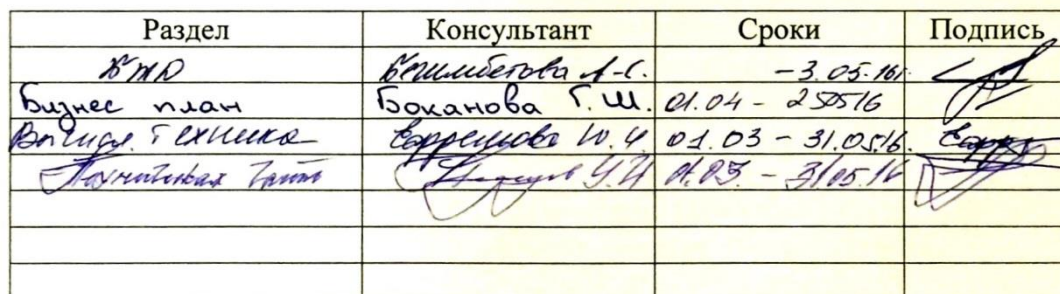 Раздел Консультант Сроки Подпись
БЖД Бегимбетова А.С. - 3.05.16г.
Бизнес план Боканова Г.Ш. 01.04 - 250516
Вычисл. Техника Ю.И. 01.03 - 31.05.16.
часть У.И 01.03. - 31.05.16